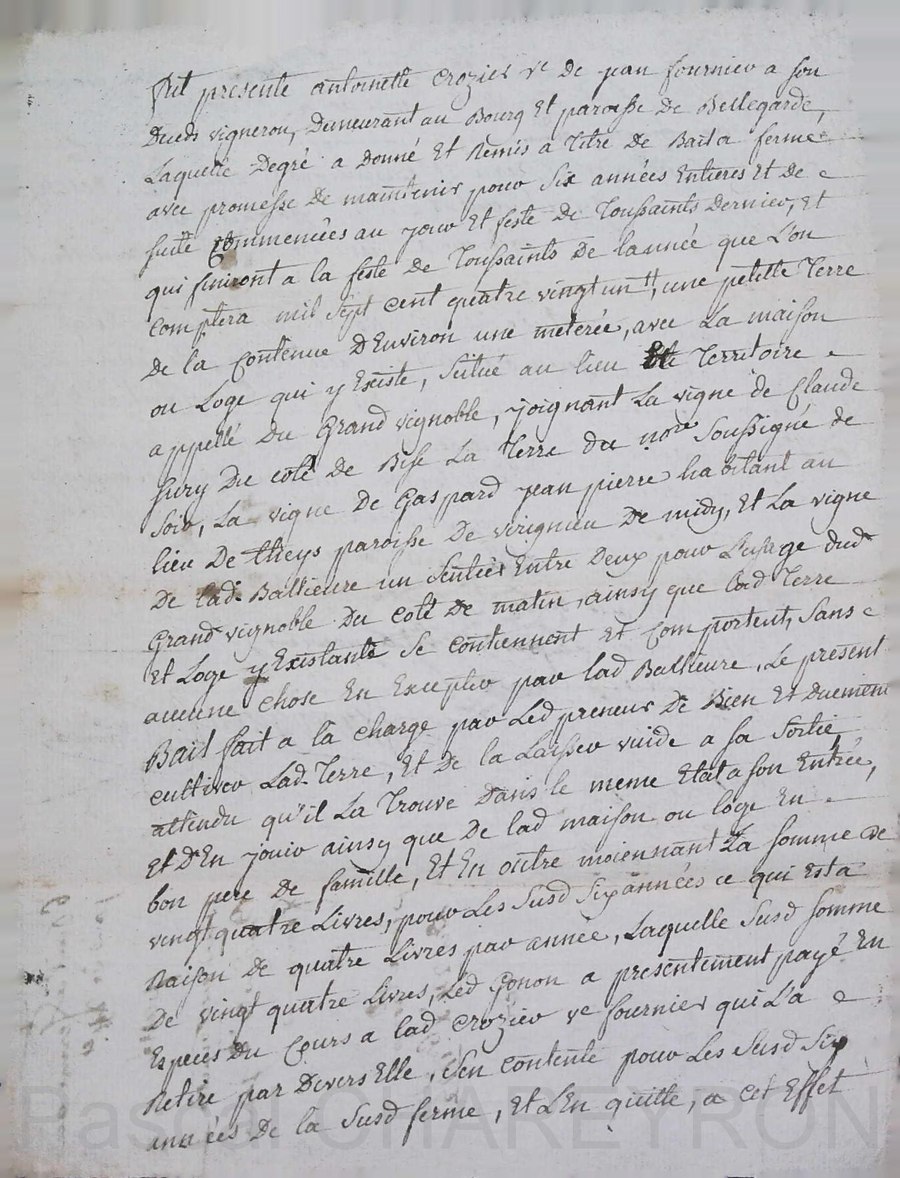 fut presente antoinette Crozier ve De jean fournier a son
Deceds vigneron, Demeurant au Bourg Et paroisse de Bellegarde,
Laquelle Degré a Donné Et Remis a Titre De Bail a ferme
avec promesse De maintenir pour Six années Entieres Et De
suite Commencées au jour Et feste de Toussaints Dernier, Et
qui finiront a la feste de Toussaints De lannée que L'on
Comptera mil Sept Cent quatre vingt un, une petitte Terre
de la Contenue D'Environ une meterée, avec La maison
ou Loge qui y Existe, Scitué au lieu Et Territoire
appellé Du Grand vignoble, joignant La vigne de Claude
fury Du coté De Bise La Terre du nore Soussigné de
Soir, La vigne De Gaspard jean pierre habitant au
lieu De theys paroisse De virignieu De midy, Et La vigne
De lad. Ballieure un Sentier Entre Deux pour L'usage dud
Grand vignoble Du coté De matin, ainsy que lad Terre
Et Loge y Existants Se contiennent Et Comportent, Sans
aucune chose En Excepter par lad Ballieure, Le present
Bail fait a la charge par Led preneur De Bien Et Duement
cultiver Lad. Terre, Et De la Laisser vuide a Sa Sortie
attendu qu'il La Trouve Dans le meme Etat a son Entrée,
Et D'En jouir ainsy que De lad maison ou loge En
bon pere De famille, Et En outre moiennant La Somme De
vingt quatre Livres, pour Les Susd Six années ce qui Est a
Raison De quatre Livres par année, Laquelle Susd Somme
De vingt quatre Livres, Led Gonon a presentement payé En
Especes Du Cours a lad Crozier ve fournier qui L'a
Retiré par Devers Elle, S'en Contente pour Les Susd Six
années De la Susd ferme, Et L'En quitte, a Cet Effet
Pascal CHAREYRON